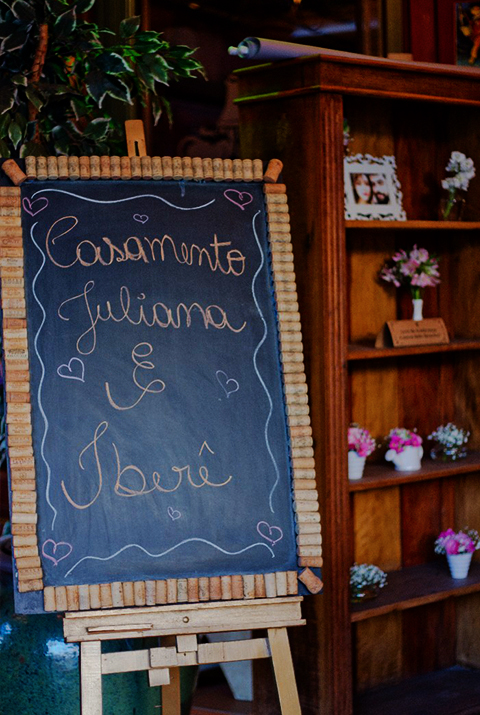 Casamento
Juliana
E
Iberê